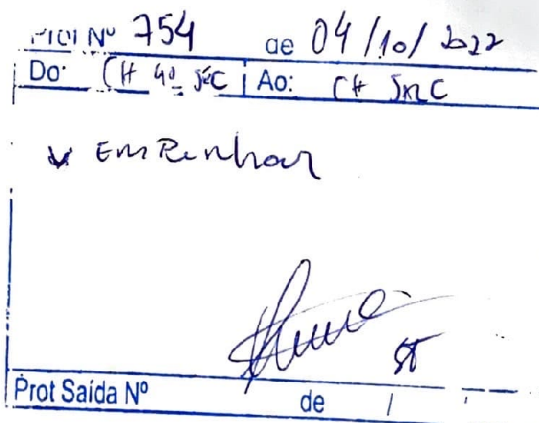 Prot Nº 754 de 04/10/2022
Do: CH 4ª SEC Ao: CH SALC
Empenhar
ST
Prot Saída Nº de / /